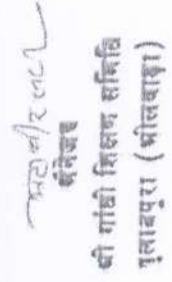 मैनेजर
श्री गांधी शिक्षण समिति
गुलाबपुरा (भीलवाड़ा)